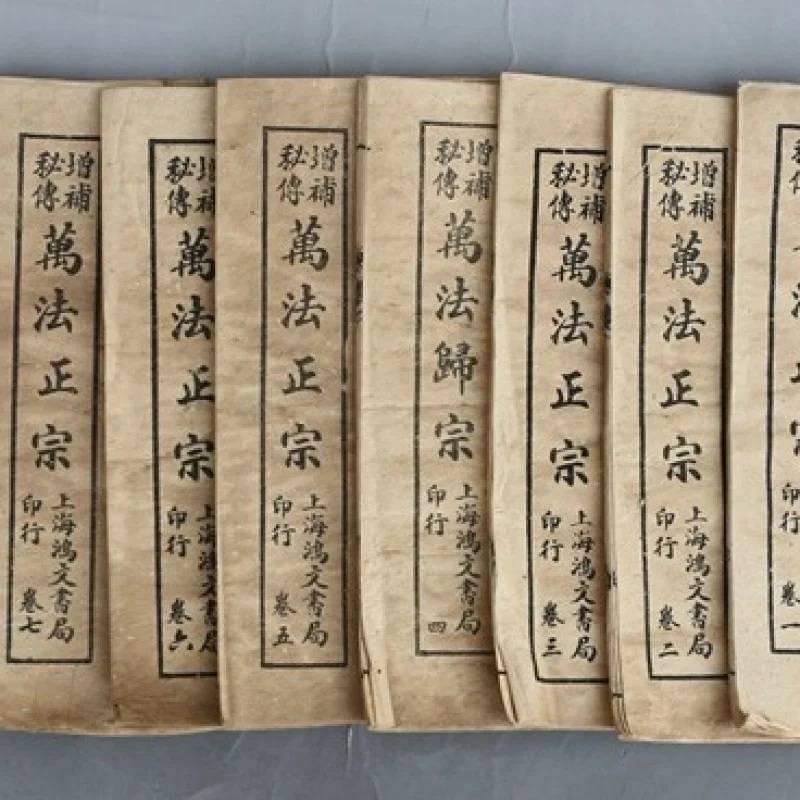 印行
卷一
增補
秘傳
萬法正宗
上海鴻文書局
印行
卷二
增補
秘傳
萬法正宗
上海鴻文書局
印行
卷三
增補
秘傳
萬法歸宗
上海鴻文書局
印行
四
增補
秘傳
萬法正宗
上海鴻文書局
印行
卷五
增補
秘傳
萬法正宗
上海鴻文書局
印行
卷六
增補
秘傳
萬法正宗
上海鴻文書局
印行
卷七